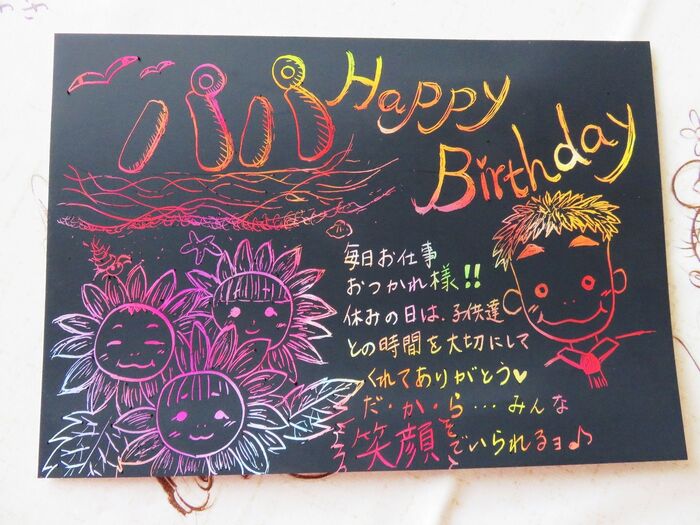 パパ
Happy
Birthday
毎日お仕事
おつかれ様!!
休みの日は、子供達
との時間を大切にして
くれてありがとう♥
だ・か・ら・・・みんな
笑顔でいられるヨ♪